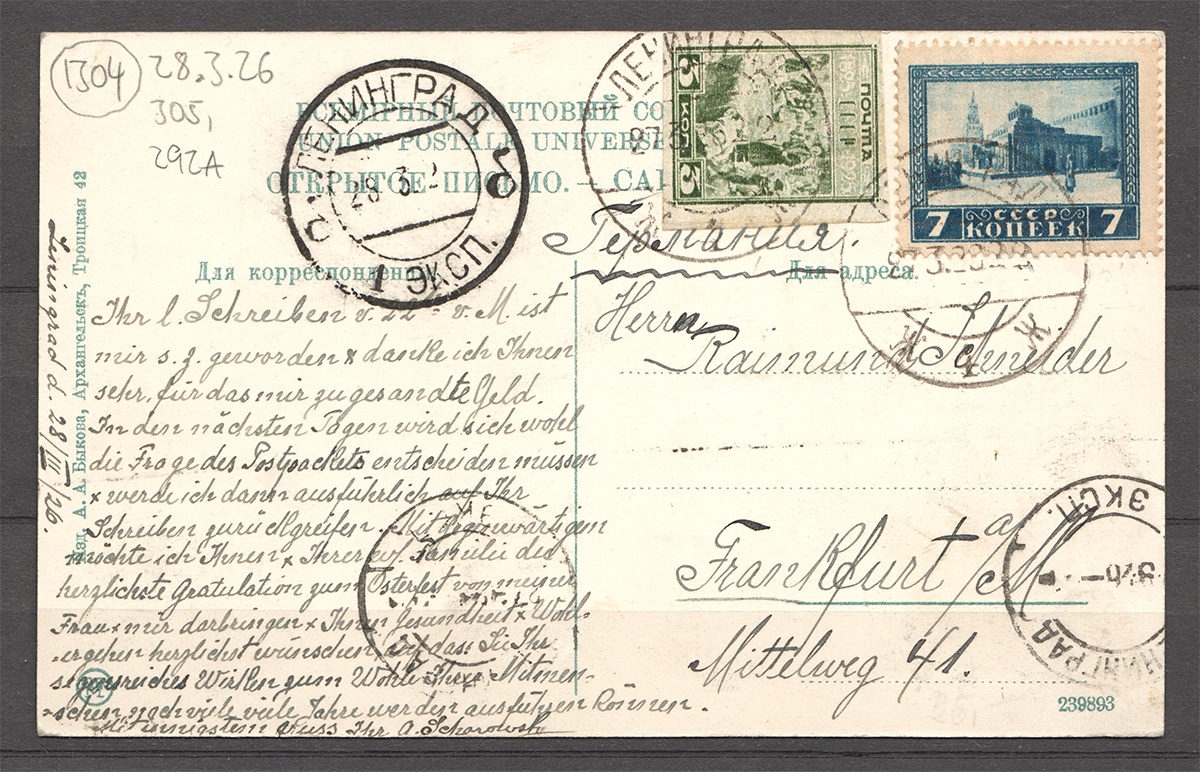 1304
28.3.26
305,
292A
ВСЕМИРНЫЙ ПОЧТОВЫЙ СО
UNION POSTALE UNIVERSE
ОТКРЫТОЕ ПИСЬМО. — CA
ЛЕНИНГРАД
28 3 2
1 ЭКСП.
ЛЕНИНГРАД
ПОЧТА
СССР
5
5
СССР
7 КОПЕЕК 7
Германия.
Для корреспонденц
Для адреса.
Изд. А. А. Быкова, Архангельскъ, Троицкая 42
Leningrad d. 28/III/26.
Ihr l. Schreiben v. 22 v. M. ist
mir s. Z. geworden & danke ich Ihnen
sehr, für das mir zugesandte Geld.
In den nächsten Tagen wird sich wohl
die Frage des Postpackets entscheiden müssen
& werde ich dann ausführlich auf Ihr
Schreiben zurückgreifen. Mit Gegenwärtigem
möchte ich Ihnen & Ihrer Familie die
herzlichste Gratulation zum Osterfest von meiner
Frau & mir darbringen & Ihnen Gesundheit & Wohl-
ergehen herzlichst wünschen, auf dass Sie Ihr
segensreiches Wirken zum Wohle Ihrer Mitmen-
schen noch viele viele Jahre werden ausführen können.
Mit innigstem Gruss Ihr
Herrn
Raimund Schneider
Frankfurt a/M.
Mittelweg 41.
ЭКСП.
НИНГРАД
239893